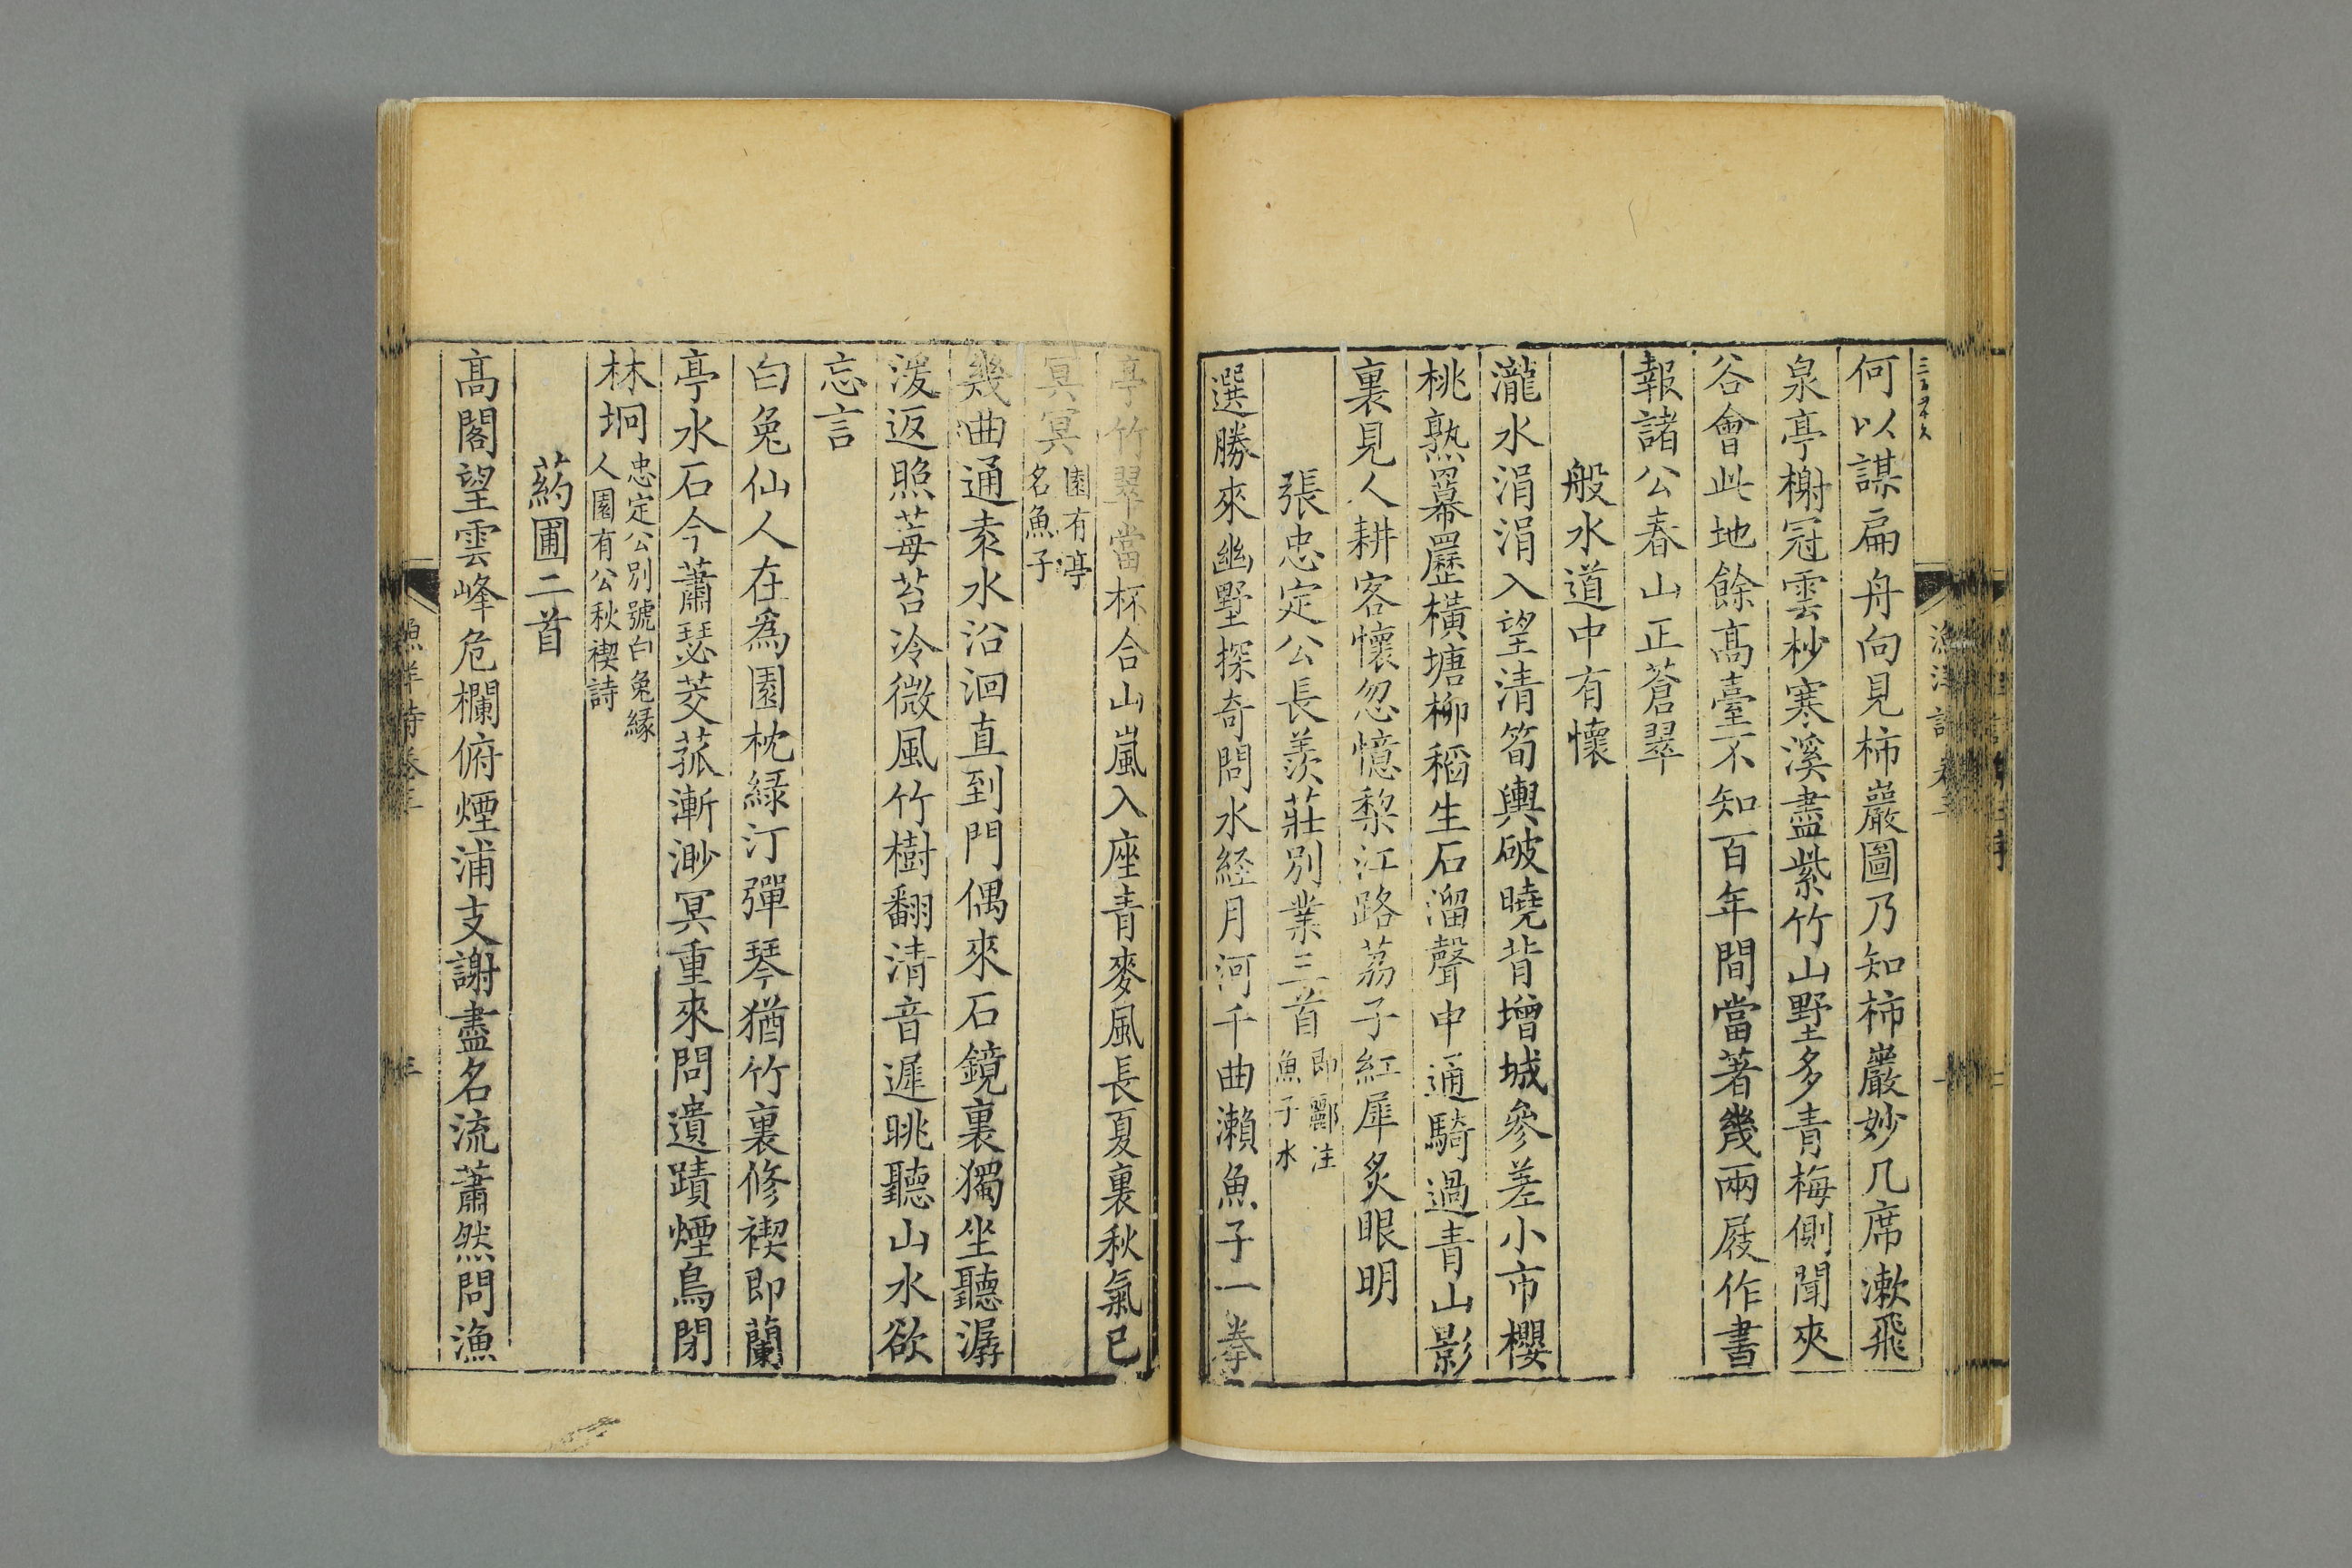 何以謀扁舟向見柿巖圖乃知柿巖妙几席漱飛
泉亭榭冠雲杪寒溪盡紫竹山野多青梅側聞夾
谷會此地餘髙臺不知百年間當著幾兩屐作書
報諸公春山正蒼翠
般水道中有懷
瀧水涓涓入望清筍輿破曉背增城參差小市櫻
桃熟羃䍥橫塘柳稻生石溜聲中通騎過青山影
裏見人耕客懷忽憶犂江路荔子紅犀炙眼明
張忠定公長羨莊別業三首
即酈注
魚子水
選勝來幽墅探奇問水経月河千曲瀨魚子一拳
亭竹翠當杯合山嵐入座青麥風長夏裏秋氣已
冥冥
園有亭
名魚子
幾曲通索水沿洄直到門偶來石鏡裏獨坐聽潺
湲返照莓苔冷微風竹樹翻清音遲眺聽山水欲
忘言
白兔仙人在爲園枕緑汀彈琴猶竹裏修禊即蘭
亭水石今蕭瑟茭菰漸渺冥重來問遺蹟煙鳥閉
林坰
忠定公別號白兔縁
人園有公秋禊詩
葯圃二首
髙閣望雲峰危欄俯煙浦支謝盡名流蕭然問漁
漁洋詩卷三